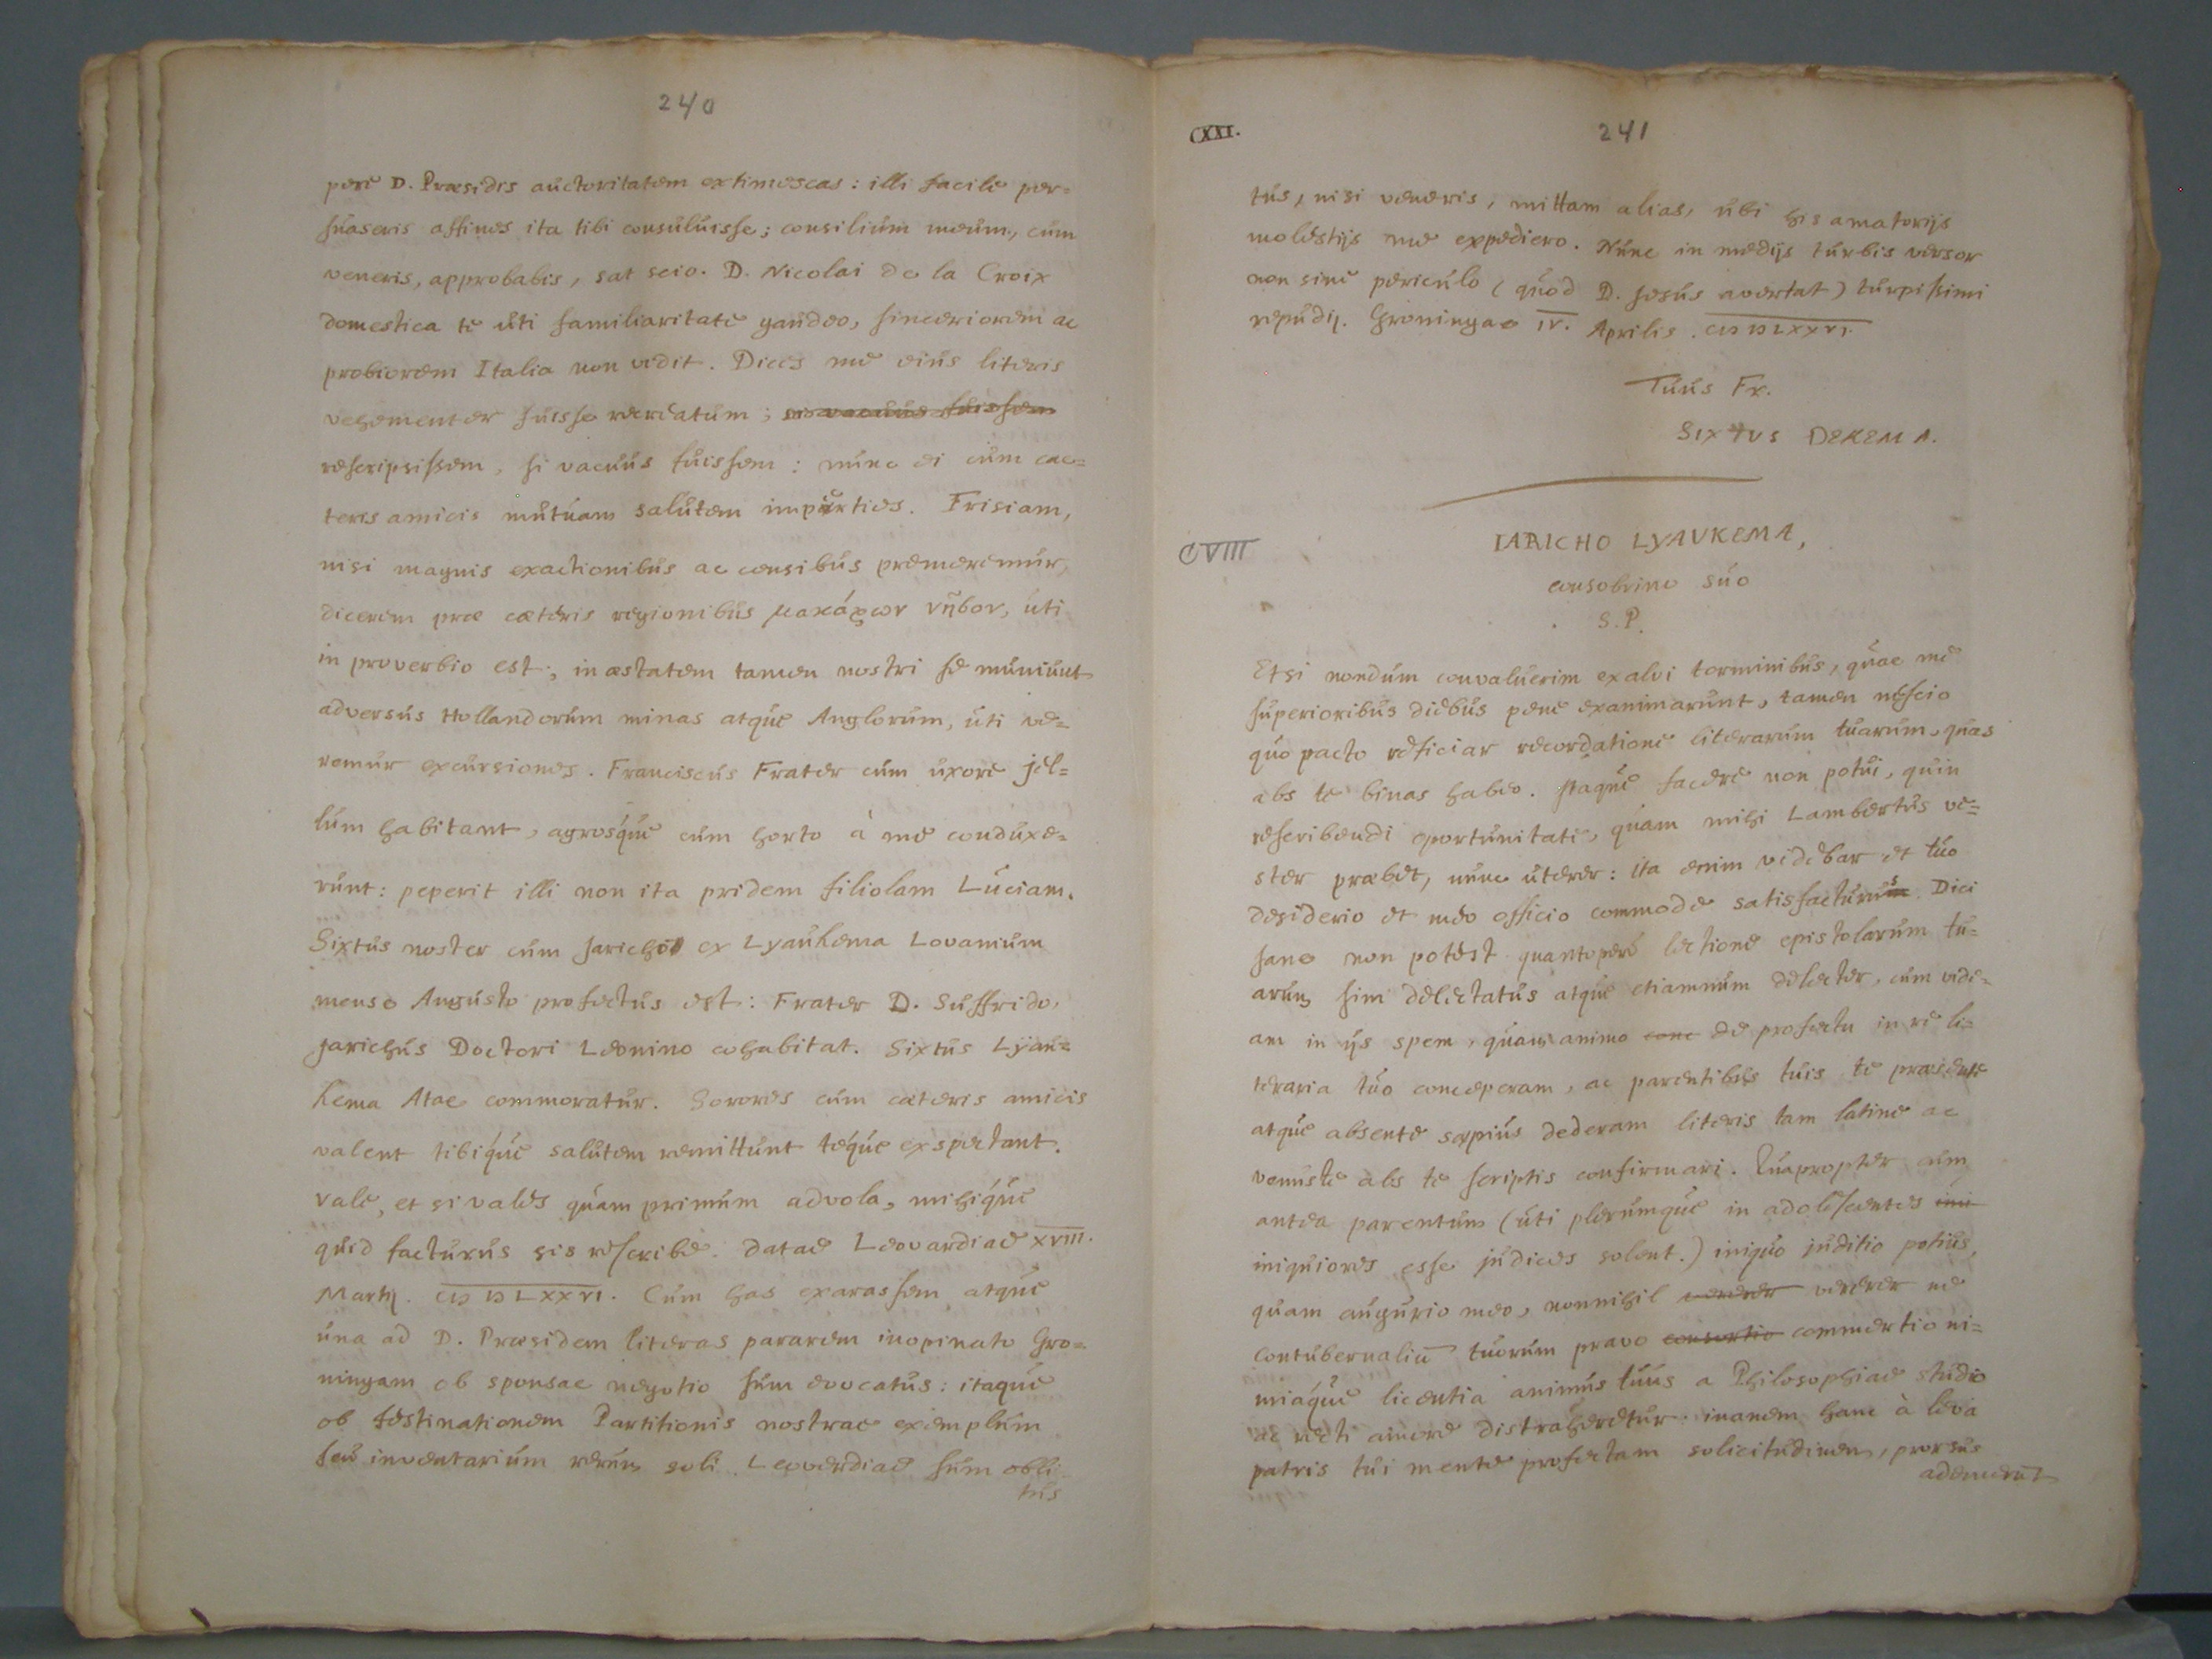 240
pere D. Præsidis auctoritatem extimescas: illi facile per=
suaseris affines ita tibi consuluisse; consilium meum, cum
veneris, approbabis, sat scio. D. Nicolai de la Croix
domestica te uti familiaritate gaudeo, sinceriorem ac
probiorem Italia non vidit. Dices me eius literis
vehementer fuisse recreatum; si vacuus fuissem
rescripsissem, si vacuus fuissem: nunc ei cum cae=
teris amicis mutuam salutem imperties. Frisiam,
nisi magnis exactionibus ac censibus premeremur,
dicerem præ cæteris regionibus μακάρων νῆσον, uti
in proverbio est; in æstatem tamen nostri se muniunt
adversus Hollandorum minas atque Anglorum, uti ve=
remur excursiones. Franciscus Frater cum uxore Jel=
lum habitant, agrosque cum horto à me conduxe=
runt: peperit illi non ita pridem filiolam Luciam.
Sixtus noster cum Jaricho ex Lyaukema Lovanium
mense Augusto profectus est: Frater D. Suffrido,
Jarichus Doctori Leonino cohabitat. Sixtus Lyau=
kema Atae commoratur. Sorores cum cæteris amicis
valent tibique salutem remittunt teque exspectant.
Vale, et si vales quam primum advola, mihique
quid facturus sis rescribe. Datae Leovardiae XVIII.
Martij. CIↃ IↃ LXXVI. Cum has exarassem atque
una ad D. Præsidem literas pararem inopinato Gro=
ningam ob sponsae negotio sum evocatus: itaque
ob festinationem Partitionis nostrae exemplum
seu inventarium rerum soli Leoverdiae sum obli
tus
CXXI.
241
tus, nisi veneris, mittam alias, ubi his amatorijs
molestijs me expediero. Nunc in medijs turbis versor
non sine periculo (quod D. Jesus avertat) turpissimi
repudij. Groningae IV. Aprilis. CIↃ IↃ LXXVI.
Tuus Fr.
SIXTVS DEKEMA.
CVIII
IARICHO LYAVKEMA,
consobrino suo
S. P.
Etsi nondum convaluerim ex alvi torminibus, quae me
superioribus diebus pene exanimarunt, tamen nescio
quo pacto reficiar recordatione literarum tuarum, quas
abs te binas habeo. Itaque facere non potui, quin
rescribendi oportunitate, quam mihi Lambertus ve=
ster præbet, nunc uterer: ita enim videbar et tuo
desiderio et meo officio commode satisfacturus. Dici
sane non potest quantopere lectione epistolarum tu=
arum sim delectatus atque etiamnum delecter, cum vide=
am in ijs spem, quam animo conc de profectu in re li=
teraria tuo conceperam, ac parentibus tuis te præsente
atque absente sæpius dederam literis tam latine ac
venuste abs te scriptis confirmari. Quapropter cum
antea parentum (uti plerumque in adolescentes ini
iniquiores esse judices solent.) iniquo juditio potius,
quam augurio meo, nonnihil vererer vererer ne
contubernaliū tuorum pravo consortio commertio ni=
miaque licentia animus tuus a Philosophiae studio
ac recti amore distraheretur: inanem hanc à leva
patris tui mente profectam solicitudinem, prorsus
ademerūt